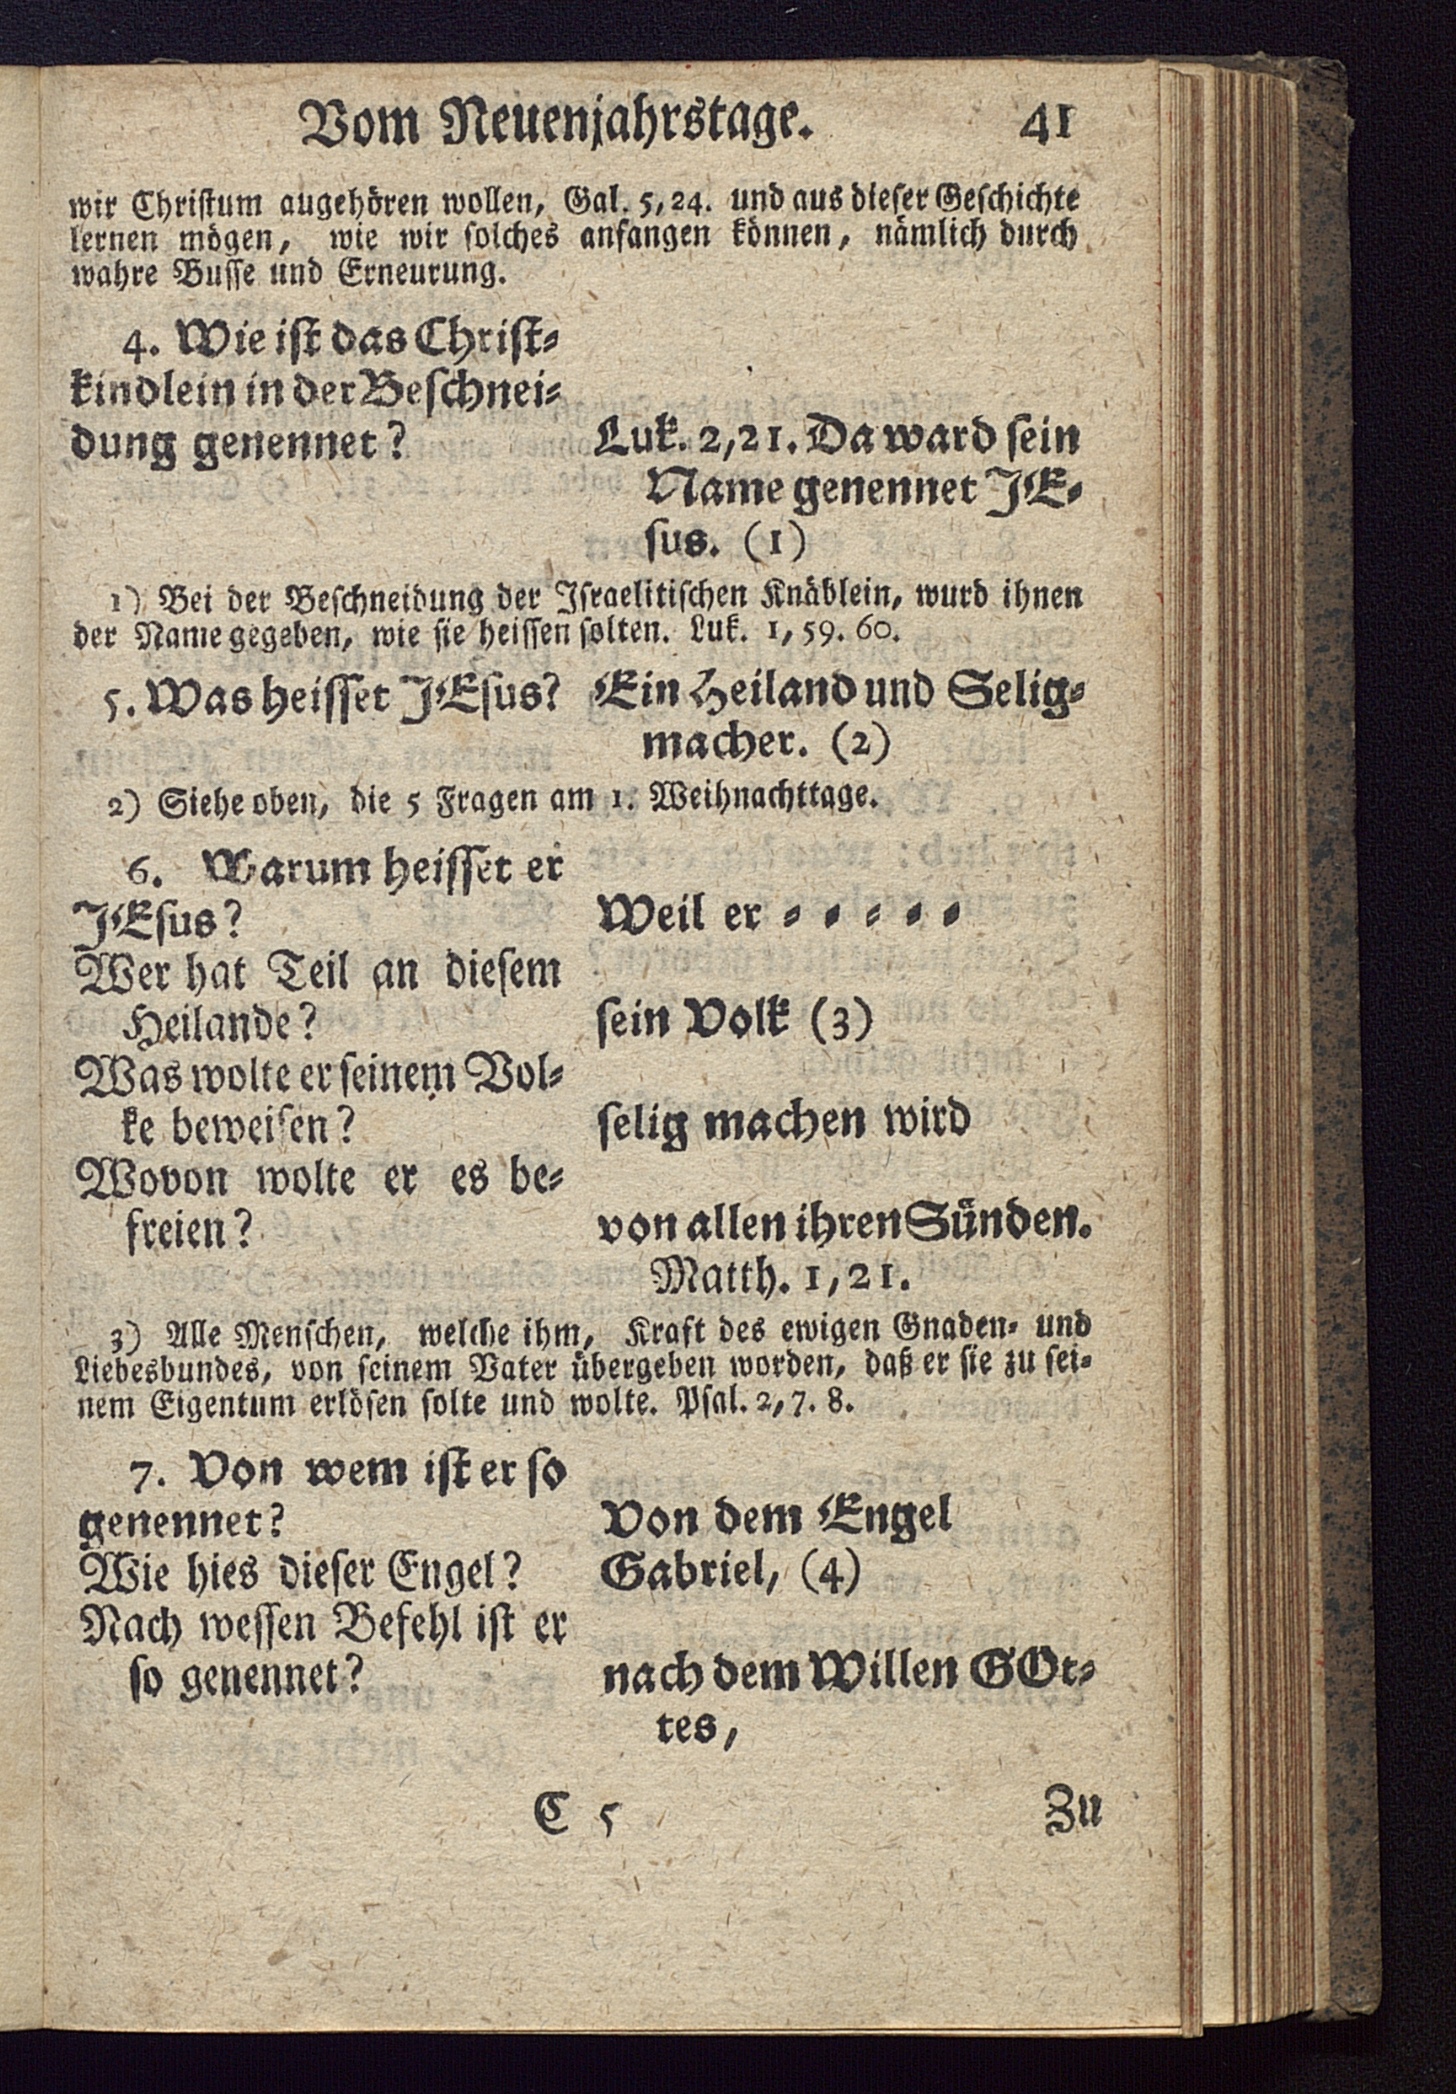 Vom Neuenjahrstage. 41
wir Christum augehören wollen, Gal. 5,24. und aus dieser Geschichte
lernen mögen, wie wir solches anfangen können, nämlich durch
wahre Busse und Erneurung.
4. Wie ist das Christ-
kindlein in der Beschnei-
dung genennet?
Luk. 2,21. Da ward sein
Name genennet JE-
sus. (1)
1) Bei der Beschneidung der Israelitischen Knäblein, wurd ihnen
der Name gegeben, wie sie heissen solten. Luk. 1,59. 60.
5. Was heisset JEsus?
Ein Heiland und Selig-
macher. (2)
2) Siehe oben, die 5 Fragen am 1. Weihnachttage.
6. Warum heisset er
JEsus?
Weil er - - - - -
Wer hat Teil an diesem
Heilande?
sein Volk (3)
Was wolte er seinem Vol-
ke beweisen?
selig machen wird
Wovon wolte er es be-
freien?
von allen ihren Sünden.
Matth. 1,21.
3) Alle Menschen, welche ihm, Kraft des ewigen Gnaden- und
Liebesbundes, von seinem Vater übergeben worden, daß er sie zu sei-
nem Eigentum erlösen solte und wolte. Psal. 2,7. 8.
7. Von wem ist er so
genennet?
Von dem Engel
Wie hies dieser Engel?
Gabriel, (4)
Nach wessen Befehl ist er
so genennet?
nach dem Willen GOt-
tes,
C 5 Zu